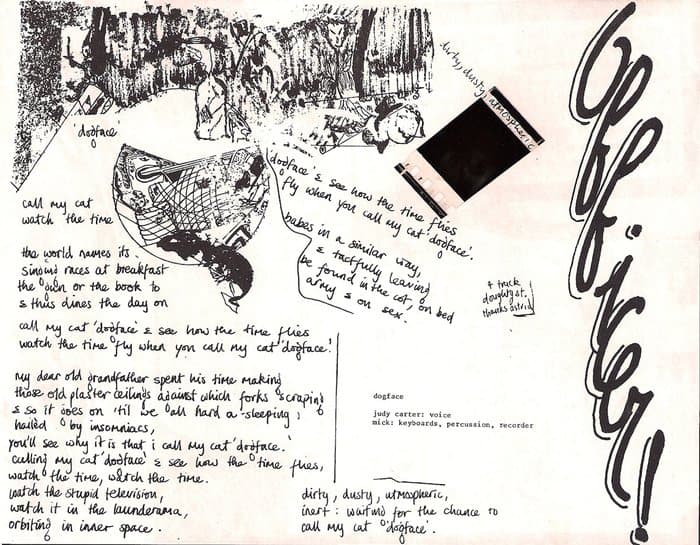 dirty, dusty, atmospheric
Officer!
dogface
call my cat
watch the time
the world names its
singing races at breakfast
the open or the book to
& thus dines the day on
call my cat 'dogface' & see how the time flies
watch the time fly when you call my cat 'dogface'.
my dear old grandfather spent his time making
those old plaster ceilings against which forks scraping
& so it goes on 'til we all hard a-sleeping,
hailed by insomniacs,
you'll see why it is that i call my cat 'dogface'.
calling my cat 'dogface' & see how the time flies,
watch the time, watch the time.
watch the stupid television,
watch it in the launderama,
orbiting in inner space.
'dogface' & see how the time flies
fly when you call my cat 'dogface'.
babes in a similar way,
& tactfully leaving
be found in the cot, on bed
army & on sex.
4 track
doughty st.
thanks astrid
dogface
judy carter: voice
mick: keyboards, percussion, recorder
dirty, dusty, atmospheric,
inert: waiting for the chance to
call my cat 'dogface'.